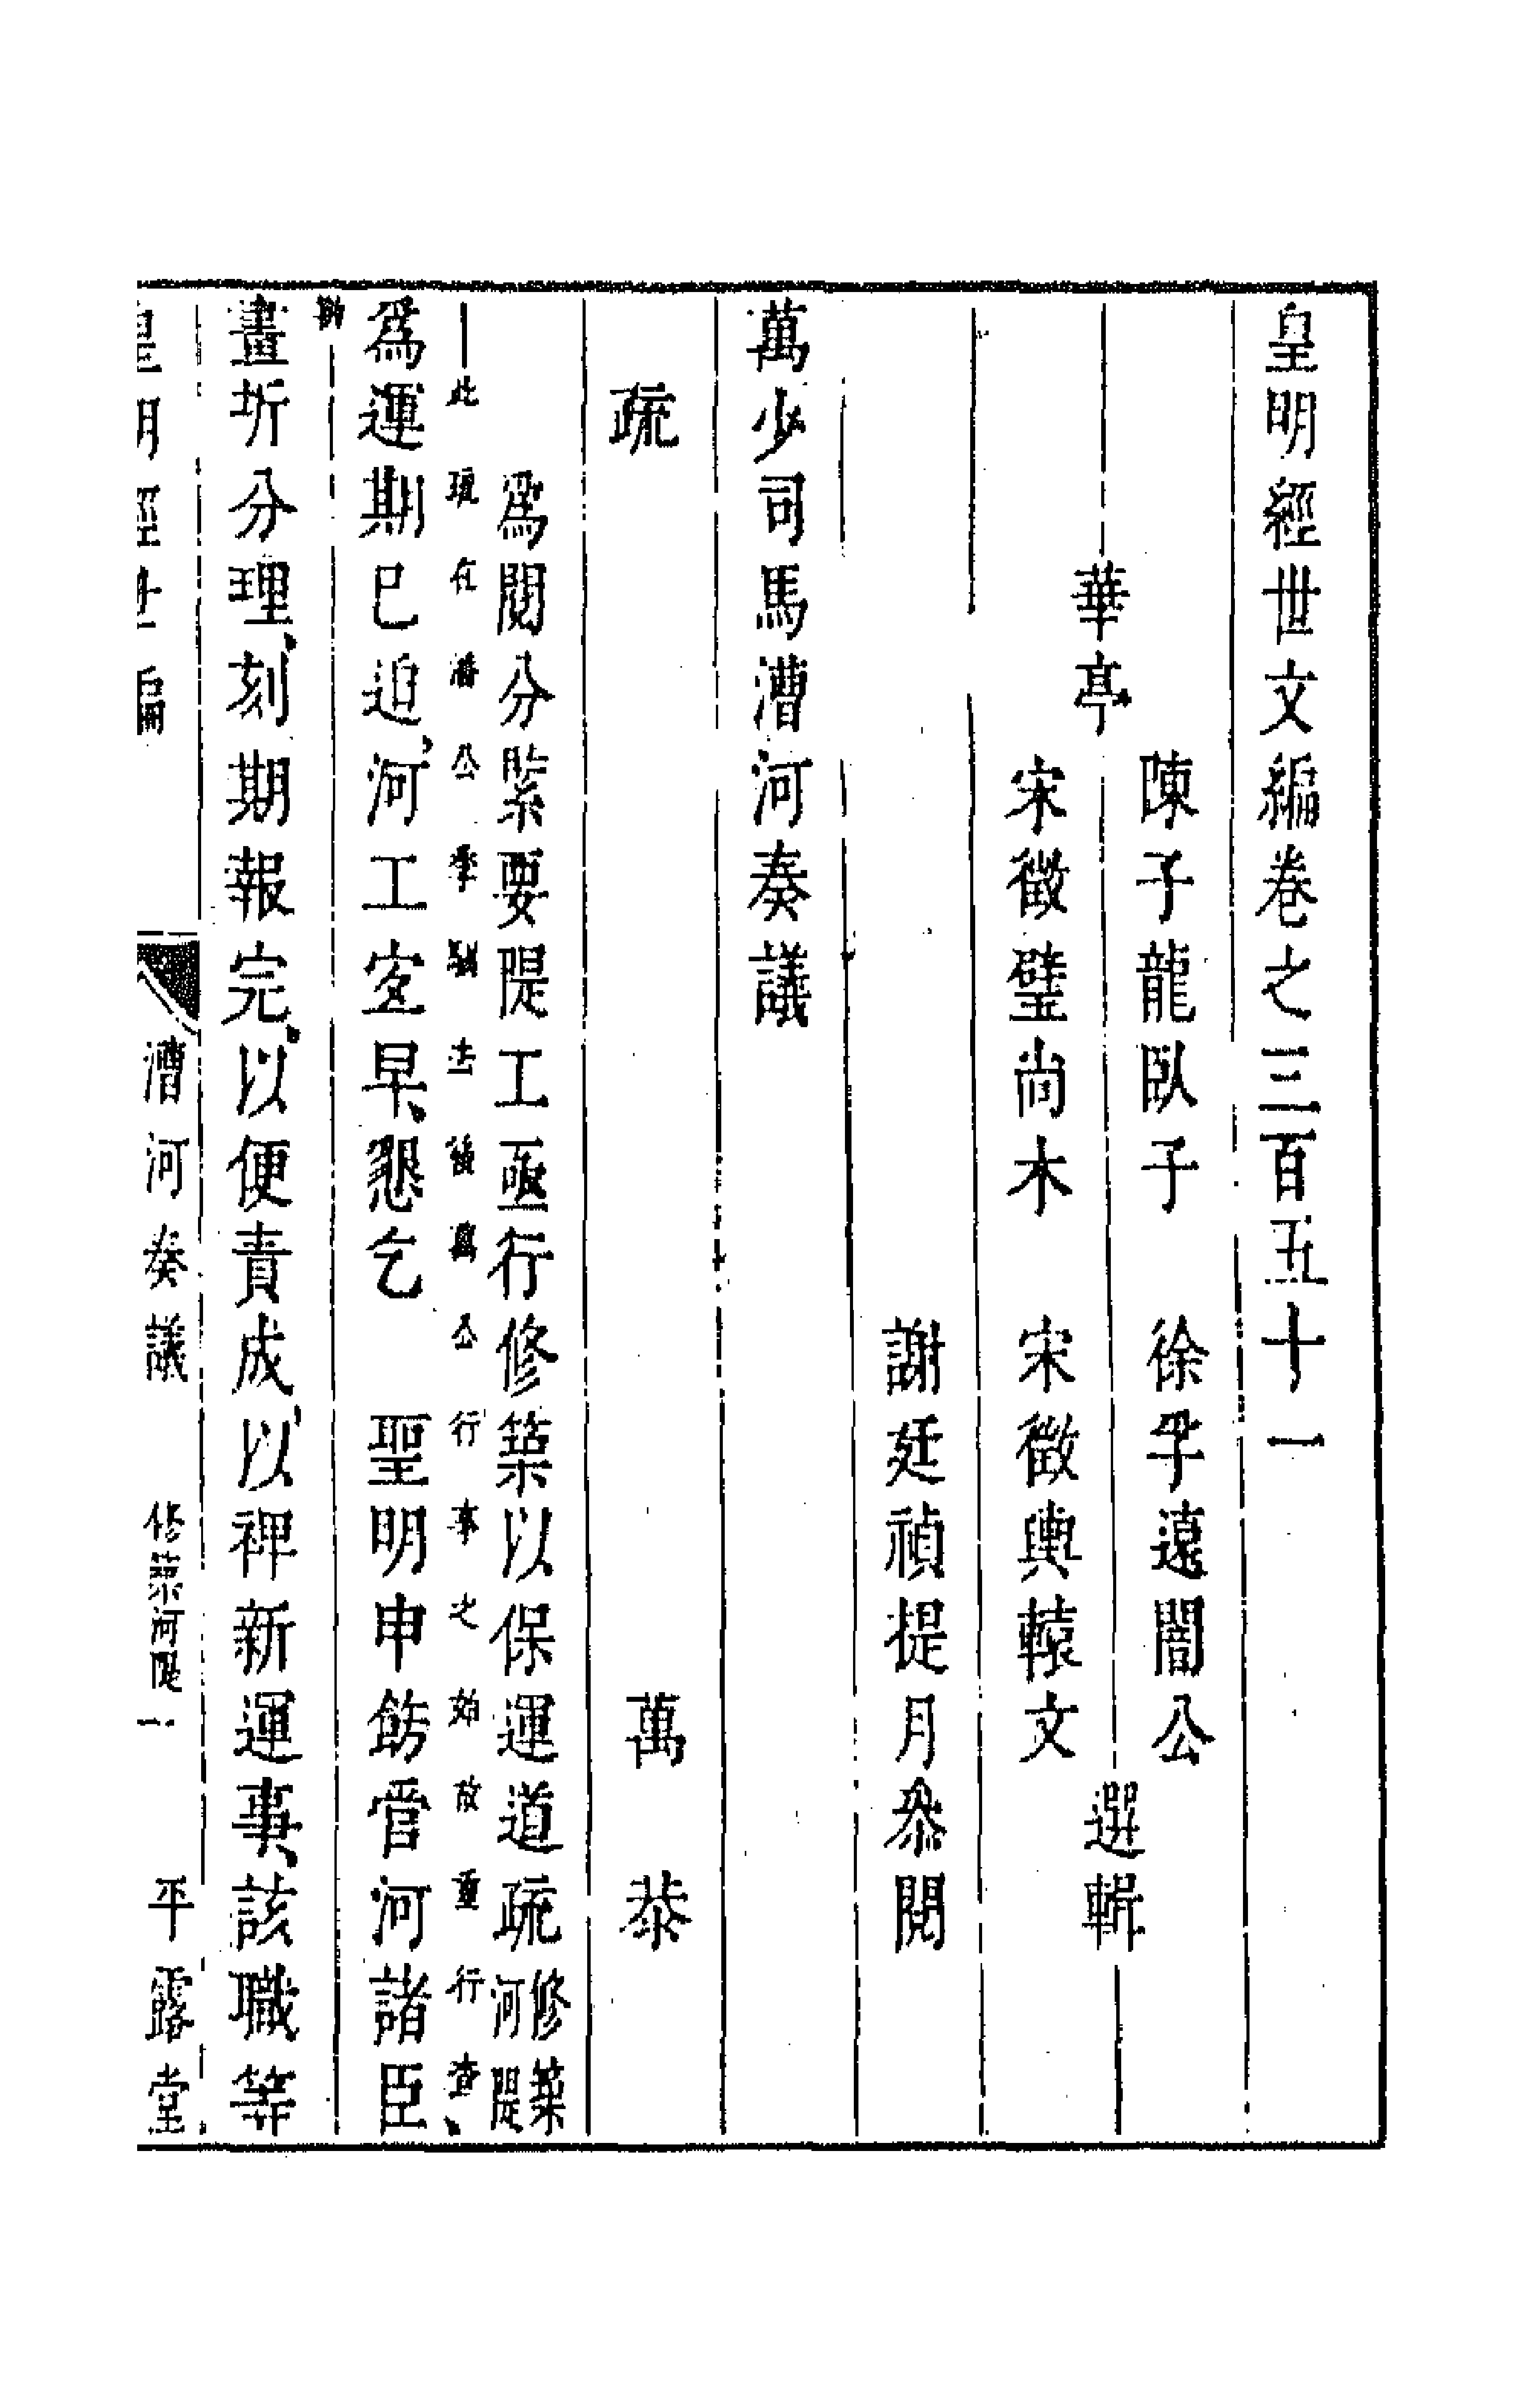 皇明經世文編卷之三百五十一
陳子龍臥子　徐孚遠闇公
華亭　選輯
宋徵璧尚木　宋徵輿轅文
謝廷禎提月叅閱
萬少司馬漕河奏議
疏　萬恭
爲閱分緊要隄工亟行修築以保運道疏 修築河隄
此 在潘公季馴去後萬公行事之始故重行查
勘
爲運期已迫河工宜早懇乞　聖明申飭管河諸臣
畫圻分理刻期報完以便責成以裨新運事該職等
皇明經世編　漕河奏議　修築河隄 一　平露堂